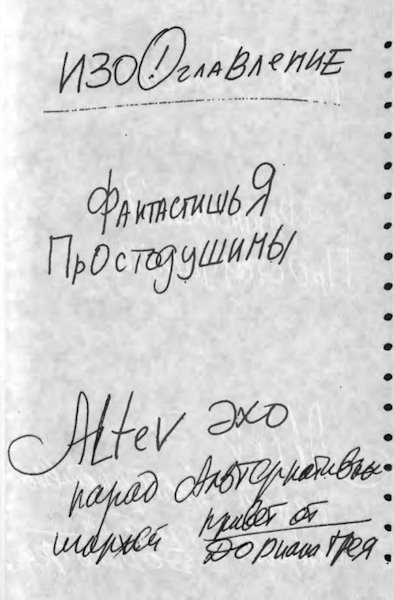 ИЗОО!главление
ФантастишьЯ
ПрОстодушины
ALter эхо
парад Альтернативных
шаржей привет от
Дориана Грея